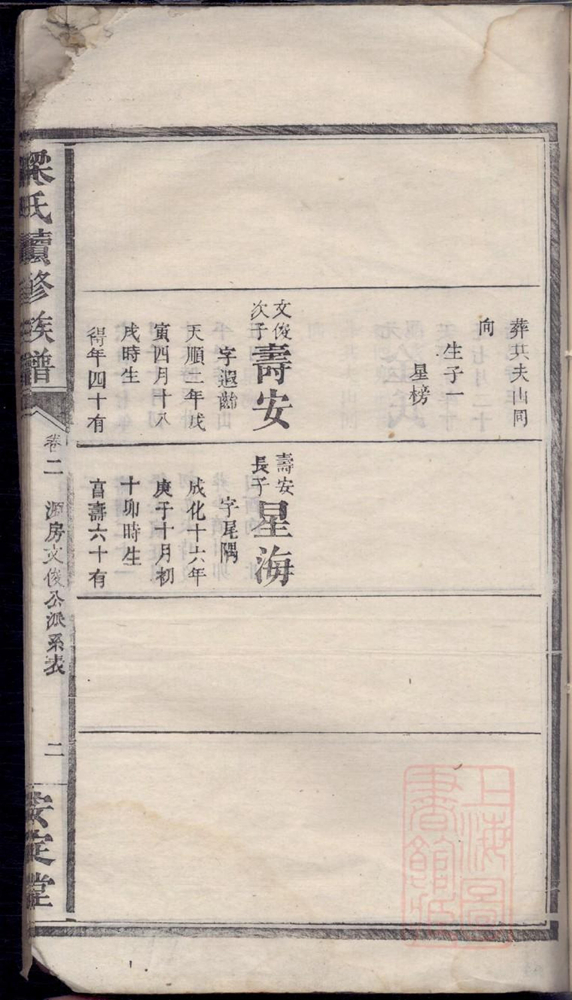 葬其夫山同
向
生子一
星榜
文俊次子壽安
字遐齡
天順二年戊
寅四月十八
戌時生
得年四十有
壽安長子星海
字尾隅
成化十六年
庚子十月初
十卯時生
享壽六十有
梁氏續修族譜
卷二
源房文俊公派系表
二
安定堂
上海圖
書館藏